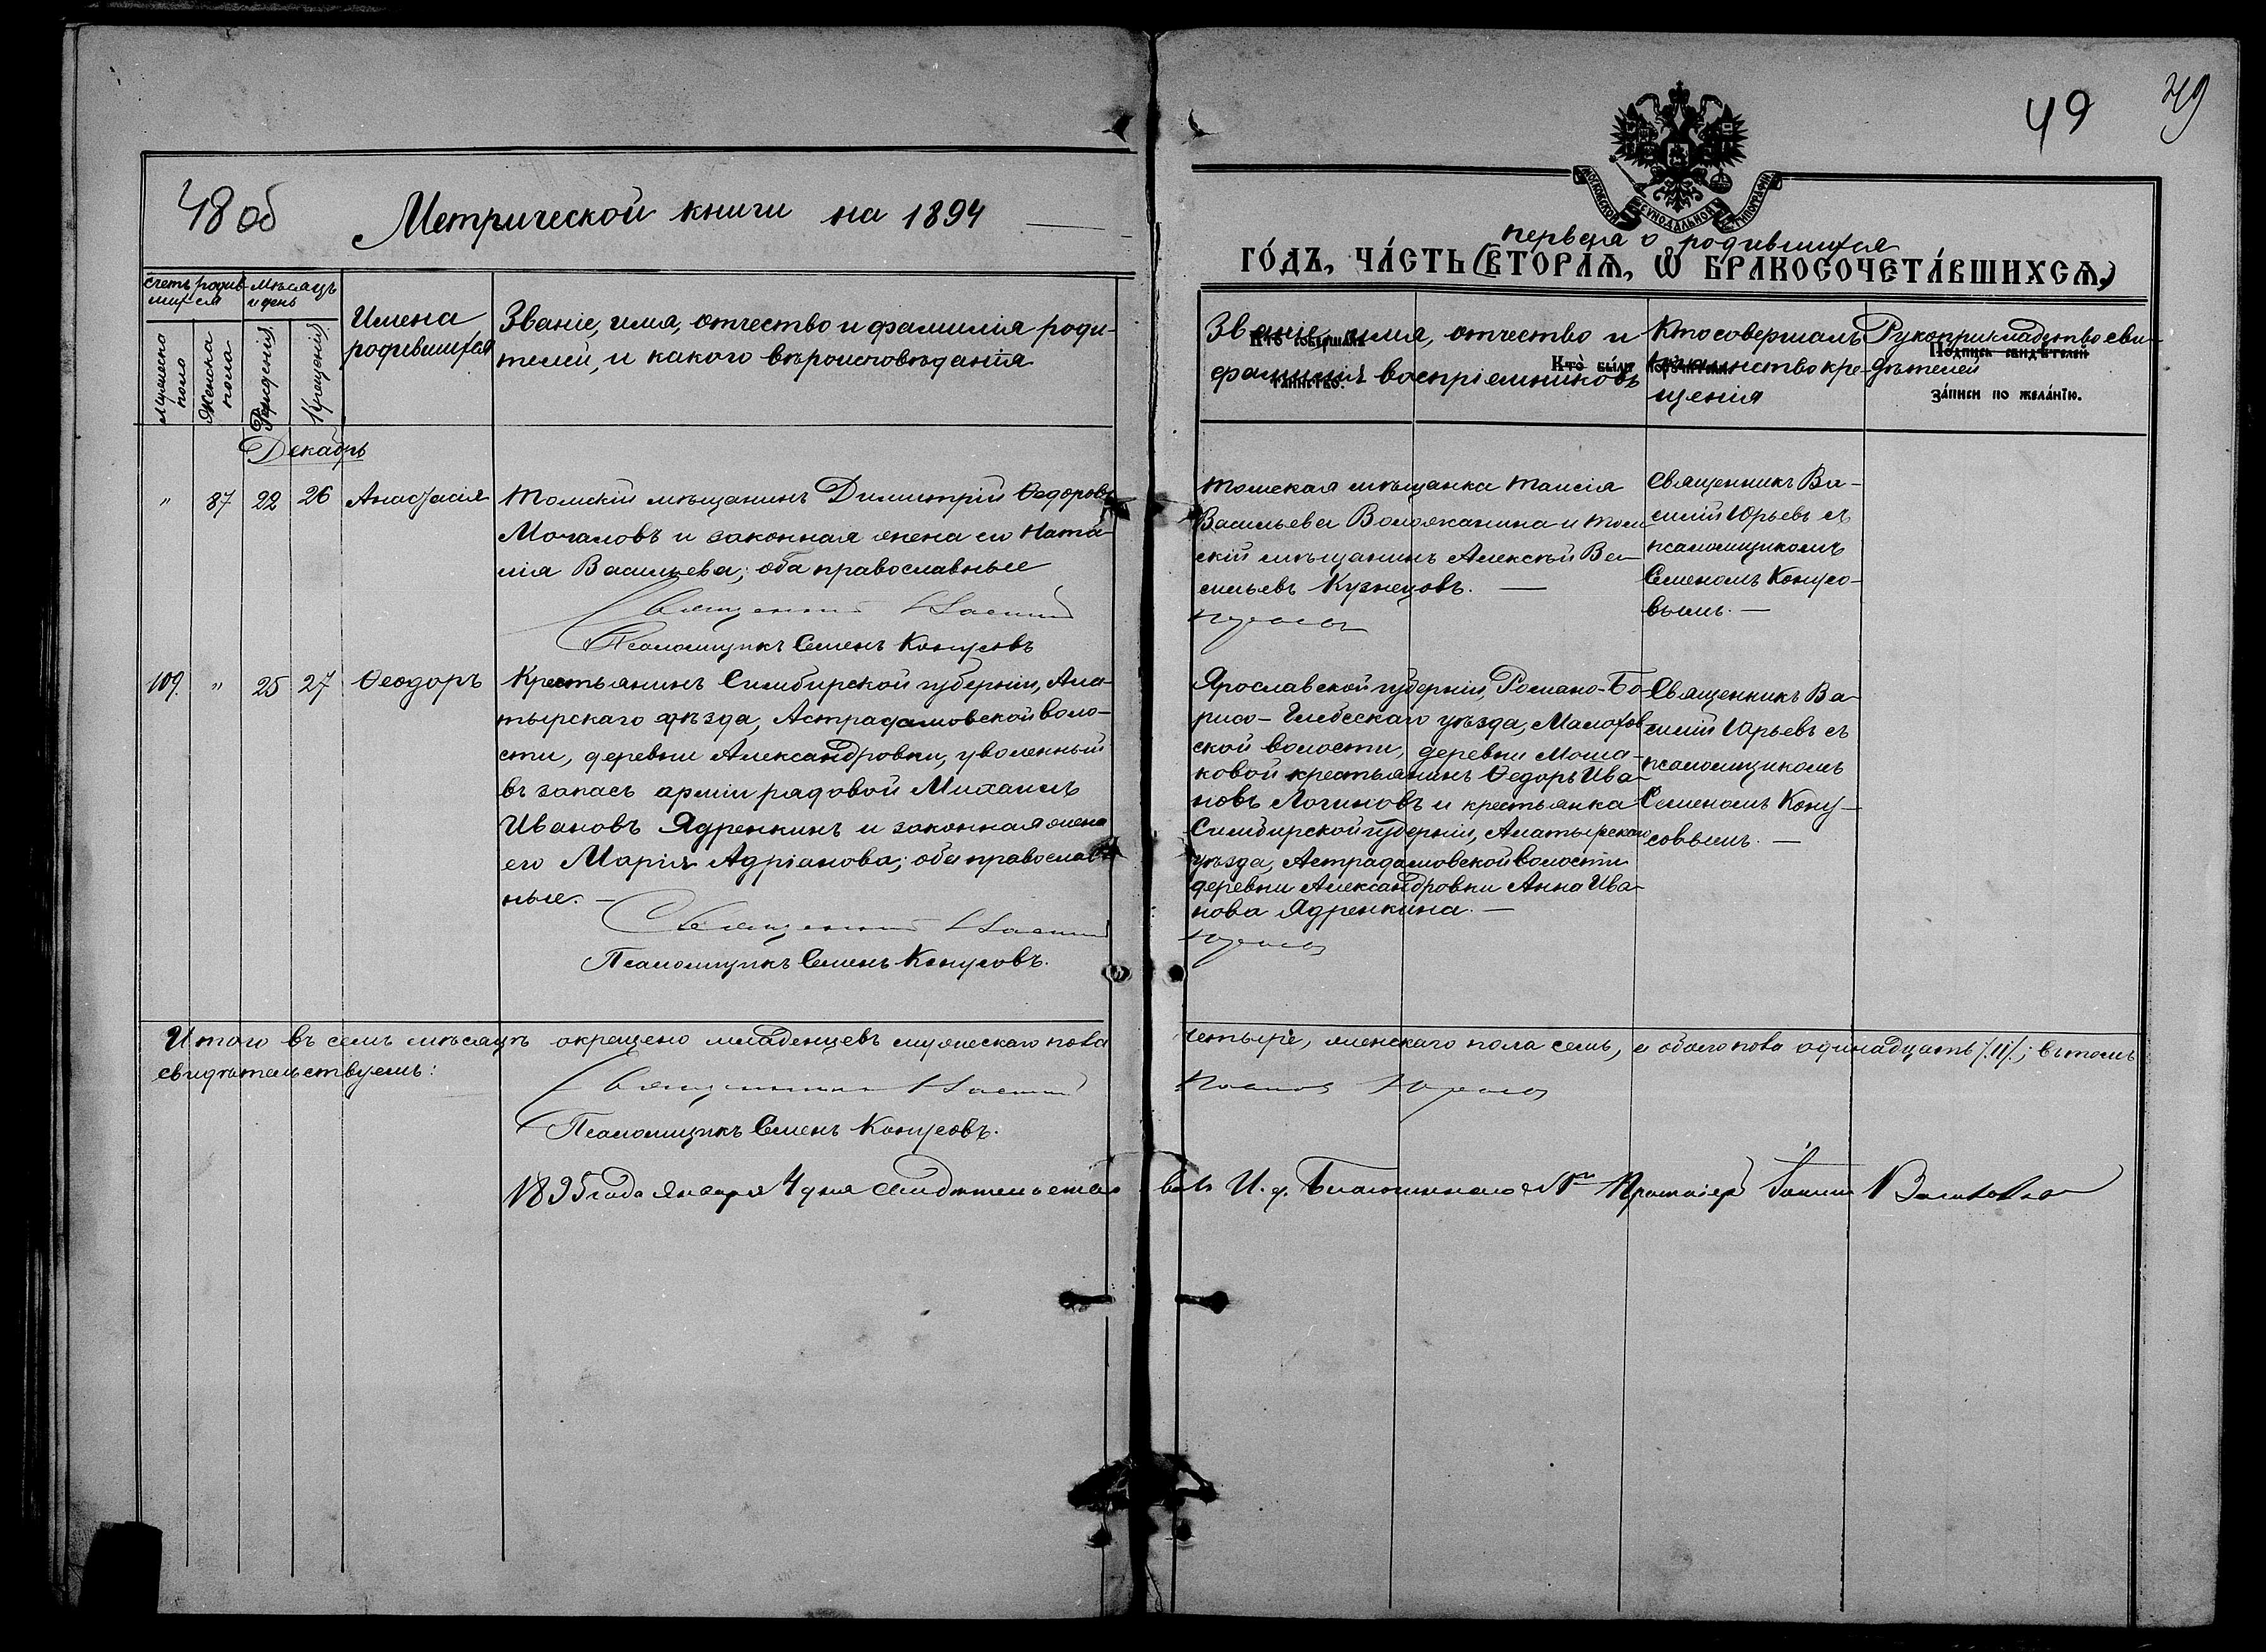 48 об
Метрической книги на 1894
49
49
МОСКОВСКОЙ СѴНОДАЛЬНОЙ ТИПОГРАФІИ
первая о родившихся
ГО́ДЪ, ЧА́СТЬ (ВТОРА́Я, Ѡ БРАКОСОЧЕТА́ВШИХСЯ,)
Счетъ родив-
шихся
Мѣсяцъ
и день
Мужеска
пола
Женска
пола
Рожденія
Крещенія
Имена
родившихся
Званіе, имя, отчество и фамилія роди-
телей, и какого вѣроисповѣданія
Званіе, имя, отчество и
фамилія воспріемниковъ
Кто совершалъ
таинство кре-
щенія
Рукоприкладство сви-
дѣтелей
Подпись свидѣтелей
за́писи по жела́нїю.
Декабрь
" 87 22 26 Анастасія
Томскій мѣщанинъ Димитрій Ѳедоровъ
Мочаловъ и законная жена его Ната-
лія Васильева; оба православные
Священникъ Василій
Псаломщикъ Семенъ Конусовъ
Томская мѣщанка Таисія
Васильева Воложанина и Том-
скій мѣщанинъ Алексѣй Ва-
сильевъ Кузнецовъ. —
Юрьевъ
Священникъ Ва-
силій Юрьевъ съ
псаломщикомъ
Семеномъ Конусо-
вымъ. —
109. " 25 27 Ѳеодоръ
Крестьянинъ Симбирской губерніи, Ала-
тырскаго уѣзда, Астрадамовской воло-
сти, деревни Александровки, уволенный
въ запасъ арміи рядовой Михаилъ
Ивановъ Ядренкинъ и законная жена
его Марія Адріанова; оба православ-
ные. —
Священникъ Василій
Псаломщикъ Семенъ Конусовъ.
Ярославской губерніи, Романо-Бо-
рисо-Глебскаго уѣзда, Малахов-
ской волости, деревни Моша-
ковой крестьянинъ Ѳедоръ Ива-
новъ Логиновъ и крестьянка
Симбирской губерніи, Алатырскаго
уѣзда, Астрадамовской волости
деревни Александровки Анна Ива-
нова Ядренкина. —
Юрьевъ
Священникъ Ва-
силій Юрьевъ съ
псаломщикомъ
Семеномъ Кону-
совымъ. —
Итого въ семъ мѣсяцѣ окрещено младенцевъ мужескаго пола четыре, женскаго пола семь, а обоего пола одинадцать /11/; въ томъ
свидѣтельствуемъ:
Священникъ Василій Юрьевъ
Псаломщикъ Семенъ Конусовъ.
1895 года января 4 дня свидѣтельствовалъ И. д. Благочиннаго Протоіерей